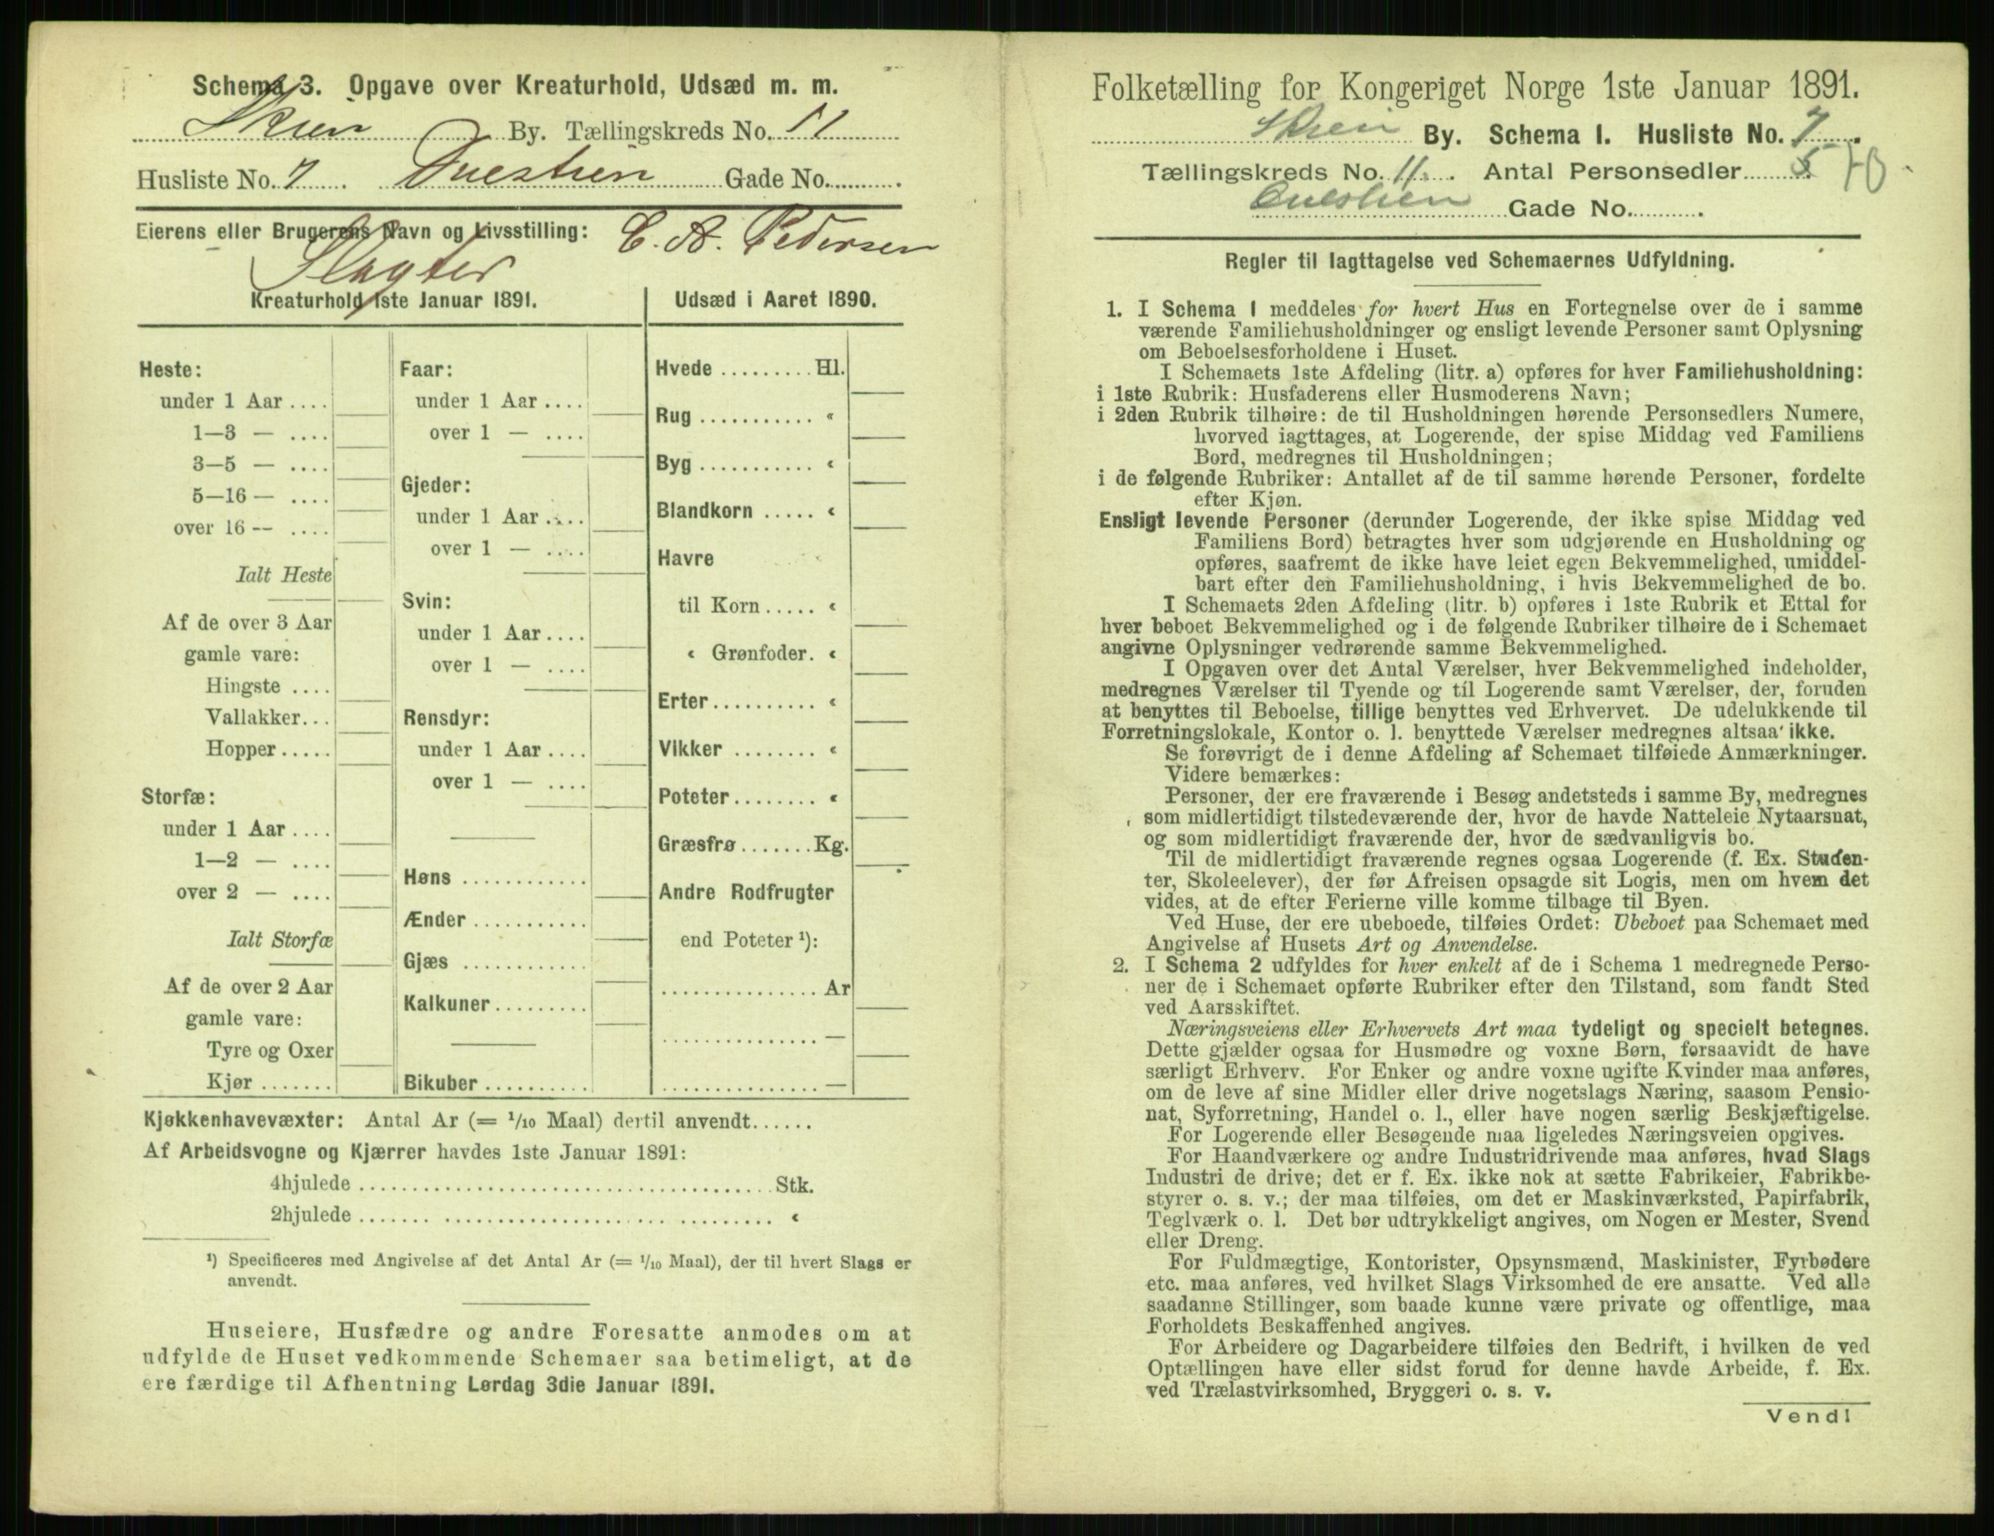 Schema 3. Opgave over Kreaturhold, Udsæd m. m.
Skien By. Tællingskreds No. 11
Husliste No. 7. Duestien Gade No..........
Eierens eller Brugerens Navn og Livsstilling: C. A. Pedersen
Slagter
Kreaturhold 1ste Januar 1891.
Heste:
under 1 Aar ....
1—3 — ....
3—5 — ....
5—16 — ....
over 16 — ....
Ialt Heste
Af de over 3 Aar
gamle vare:
Hingste ....
Vallakker...
Hopper.....
Storfæ:
under 1 Aar ....
1—2 — ....
over 2 — ....
Ialt Storfæ
Af de over 2 Aar
gamle vare:
Tyre og Oxer
Kjør .......
Faar:
under 1 Aar ....
over 1 — ....
Gjeder:
under 1 Aar ....
over 1 — ....
Svin:
under 1 Aar ....
over 1 — ....
Rensdyr:
under 1 Aar ....
over 1 — ....
Høns ............
Ænder ...........
Gjæs ............
Kalkuner.........
Bikuber ..........
Udsæd i Aaret 1890.
Hvede ......... Hl.
Rug ........... «
Byg ........... «
Blandkorn ..... «
Havre
til Korn..... «
« Grønfoder. «
Erter.......... «
Vikker ........ «
Poteter........ «
Græsfrø....... Kg.
Andre Rodfrugter
end Poteter ¹):
............... Ar
............... —
............... —
Kjøkkenhavevæxter: Antal Ar (= 1/10 Maal) dertil anvendt......
Af Arbeidsvogne og Kjærrer havdes 1ste Januar 1891:
4hjulede ........................................ Stk.
2hjulede ........................................ «
¹) Specificeres med Angivelse af det Antal Ar (= 1/10 Maal), der til hvert Slags er
anvendt.
Huseiere, Husfædre og andre Foresatte anmodes om at
udfylde de Huset vedkommende Schemaer saa betimeligt, at de
ere færdige til Afhentning Lørdag 3die Januar 1891.
Folketælling for Kongeriget Norge 1ste Januar 1891.
Skien By. Schema 1. Husliste No. 7.
Tællingskreds No. 11. Antal Personsedler 5
Duestien Gade No..........
Regler til Iagttagelse ved Schemaernes Udfyldning.
1. I Schema 1 meddeles for hvert Hus en Fortegnelse over de i samme
værende Familiehusholdninger og ensligt levende Personer samt Oplysning
om Beboelsesforholdene i Huset.
I Schemaets 1ste Afdeling (litr. a) opføres for hver Familiehusholdning:
i 1ste Rubrik: Husfaderens eller Husmoderens Navn;
i 2den Rubrik tilhøire: de til Husholdningen hørende Personsedlers Numere,
hvorved iagttages, at Logerende, der spise Middag ved Familiens
Bord, medregnes til Husholdningen;
i de følgende Rubriker: Antallet af de til samme hørende Personer, fordelte
efter Kjøn.
Ensligt levende Personer (derunder Logerende, der ikke spise Middag ved
Familiens Bord) betragtes hver som udgjørende en Husholdning og
opføres, saafremt de ikke have leiet egen Bekvemmelighed, umiddel-
bart efter den Familiehusholdning, i hvis Bekvemmelighed de bo.
I Schemaets 2den Afdeling (litr. b) opføres i 1ste Rubrik et Ettal for
hver beboet Bekvemmelighed og i de følgende Rubriker tilhøire de i Schemaet
angivne Oplysninger vedrørende samme Bekvemmelighed.
I Opgaven over det Antal Værelser, hver Bekvemmelighed indeholder,
medregnes Værelser til Tyende og til Logerende samt Værelser, der, foruden
at benyttes til Beboelse, tillige benyttes ved Erhvervet. De udelukkende til
Forretningslokale, Kontor o. l. benyttede Værelser medregnes altsaa ikke.
Se forøvrigt de i denne Afdeling af Schemaet tilføiede Anmærkninger.
Videre bemærkes:
Personer, der ere fraværende i Besøg andetsteds i samme By, medregnes
som midlertidigt tilstedeværende der, hvor de havde Natteleie Nytaarsnat,
og som midlertidigt fraværende der, hvor de sædvanligvis bo.
Til de midlertidigt fraværende regnes ogsaa Logerende (f. Ex. Studen-
ter, Skoleelever), der før Afreisen opsagde sit Logis, men om hvem det
vides, at de efter Ferierne ville komme tilbage til Byen.
Ved Huse, der ere ubeboede, tilføies Ordet: Ubeboet paa Schemaet med
Angivelse af Husets Art og Anvendelse.
2. I Schema 2 udfyldes for hver enkelt af de i Schema 1 medregnede Perso-
ner de i Schemaet opførte Rubriker efter den Tilstand, som fandt Sted
ved Aarsskiftet.
Næringsveiens eller Erhvervets Art maa tydeligt og specielt betegnes.
Dette gjælder ogsaa for Husmødre og voxne Børn, forsaavidt de have
særligt Erhverv. For Enker og andre voxne ugifte Kvinder maa anføres,
om de leve af sine Midler eller drive nogetslags Næring, saasom Pensio-
nat, Syforretning, Handel o. l., eller have nogen særlig Beskjæftigelse.
For Logerende eller Besøgende maa ligeledes Næringsveien opgives.
For Haandværkere og andre Industridrivende maa anføres, hvad Slags
Industri de drive; det er f. Ex. ikke nok at sætte Fabrikeier, Fabrikbe-
styrer o. s. v.; der maa tilføies, om det er Maskinværksted, Papirfabrik,
Teglværk o. l. Det bør udtrykkeligt angives, om Nogen er Mester, Svend
eller Dreng.
For Fuldmægtige, Kontorister, Opsynsmænd, Maskinister, Fyrbødere
etc. maa anføres, ved hvilket Slags Virksomhed de ere ansatte. Ved alle
saadanne Stillinger, som baade kunne være private og offentlige, maa
Forholdets Beskaffenhed angives.
For Arbeidere og Dagarbeidere tilføies den Bedrift, i hvilken de ved
Optællingen have eller sidst forud for denne havde Arbeide, f. Ex.
ved Trælastvirksomhed, Bryggeri o. s. v.
Vend!